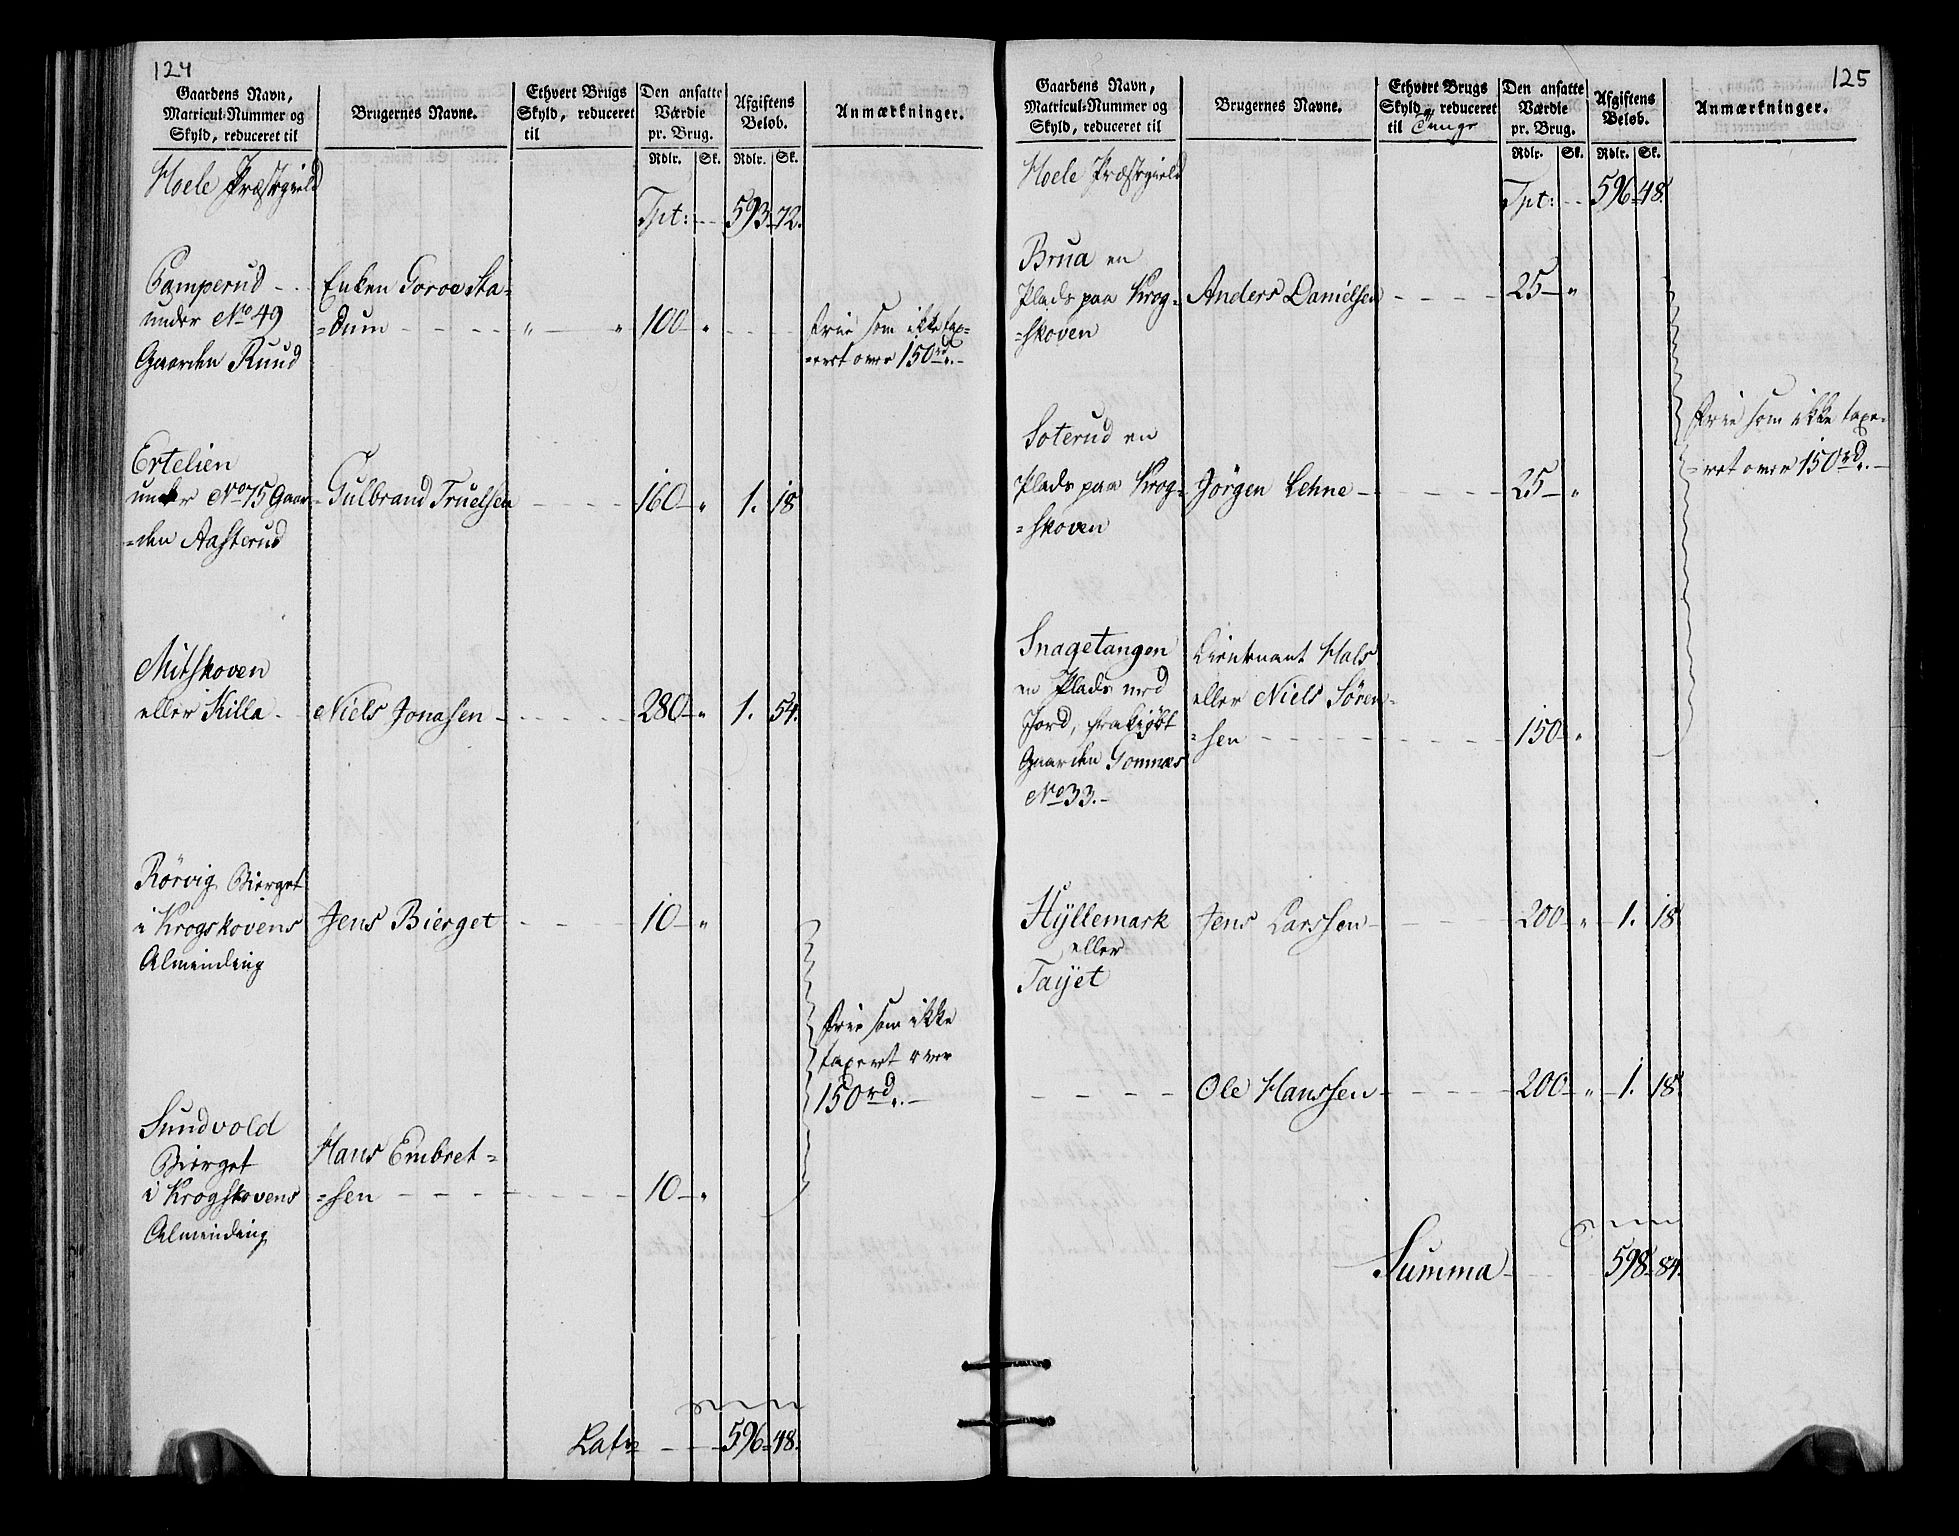 124
Gaardens Navn, Matricul-Nummer og Skyld, reduceret til
Brugernes Navne.
Ethvert Brugs Skyld, reduceret til
Den ansatte Værdie pr. Brug.
Afgiftens Beløb.
Anmærkninger.
Rdlr. Sk. Rdlr. Sk.
Hoele Præstegield
Tpt: -- 593-72.
Camperud - .
Enken Goroe Sta=
under No 49
=dum - - - - - „ - „ 100 - „ - - - -
frie som ikke tax=
Gaarden Ruud
=eret over 150rd. -
Ertelien
under No 75 Gaar=
Gulbrand Truelsen - - - - 160 - „ 1. 18
=den Aasterud
Mitskoven
eller Killa - Niels Jonassen - - - - - 280 - „ 1. 54.
Rörvig Bierget
i Krogskovens Jens Bierget - - - 10 - „
Alminding
frie som ikke
taxeret over
150rd. -
Sundvold
Bierget
Hans Embret=
i Krogskovens =sen - - - - - - - - 10 - „
Alminding
Lats - - - 596-48.
125
Gaardens Navn, Matricul-Nummer og Skyld, reduceret til
Brugernes Navne.
Ethvert Brugs Skyld, reduceret til Tunge
Den ansatte Værdie pr. Brug.
Afgiftens Beløb.
Anmærkninger.
Rdlr. Sk. Rdlr. Sk.
Hoele Præstegield
Tpt: -- 596-48.
Brua en
Plads paa Krog= Anders Danielsen - - - - 25 - „
=skoven
frie som ikke taxe=
=ret over 150rd. -
Soterud en
Plads paa Krog= Jörgen Lehne - - - - - 25 - „
=skoven
Snagetangen
Lieutnant Hals
en Plads med
eller Niels Sören=
Jord, frakiöbt
=sen - - - - - - - - - 150 - „
Gaarden Gommæs
No 33. -
Hyllemark Jens Larssen - - - - 200 - „ - 1. 18
eller
Tayet
- - - - Ole Hanssen - - - - - 200 - „ - 1. 18
Summa - - - - 598-84.